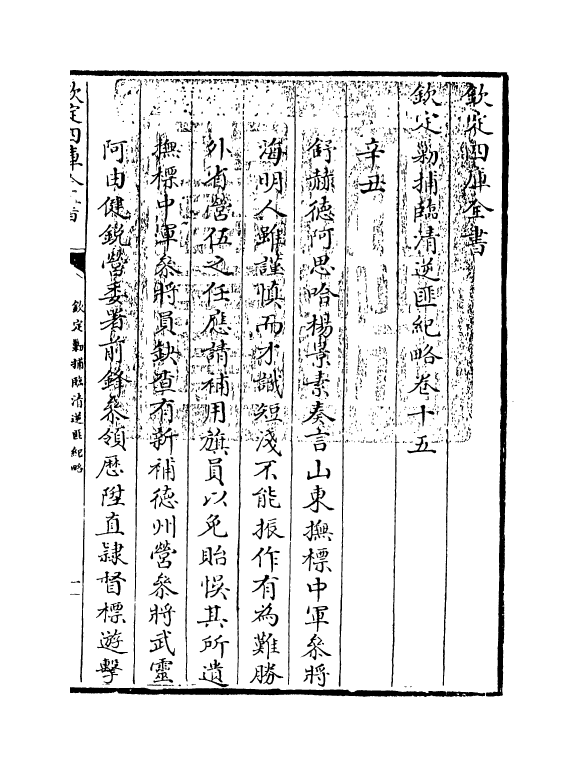 欽定四庫全書
欽定剿捕臨清逆匪紀略卷十五
辛丑
舒赫德阿思哈楊景素奏言山東撫標中軍叅將
海明人雖謹慎而才識短淺不能振作有為難勝
外省營伍之任應請補用旗員以免貽悞其所遺
撫標中軍叅將員缺查有新補德州營叅將武靈
阿由健銳營委署前鋒叅領歷陞直隷督標遊擊
欽定四庫全書
欽定剿捕臨清逆匪紀略
一